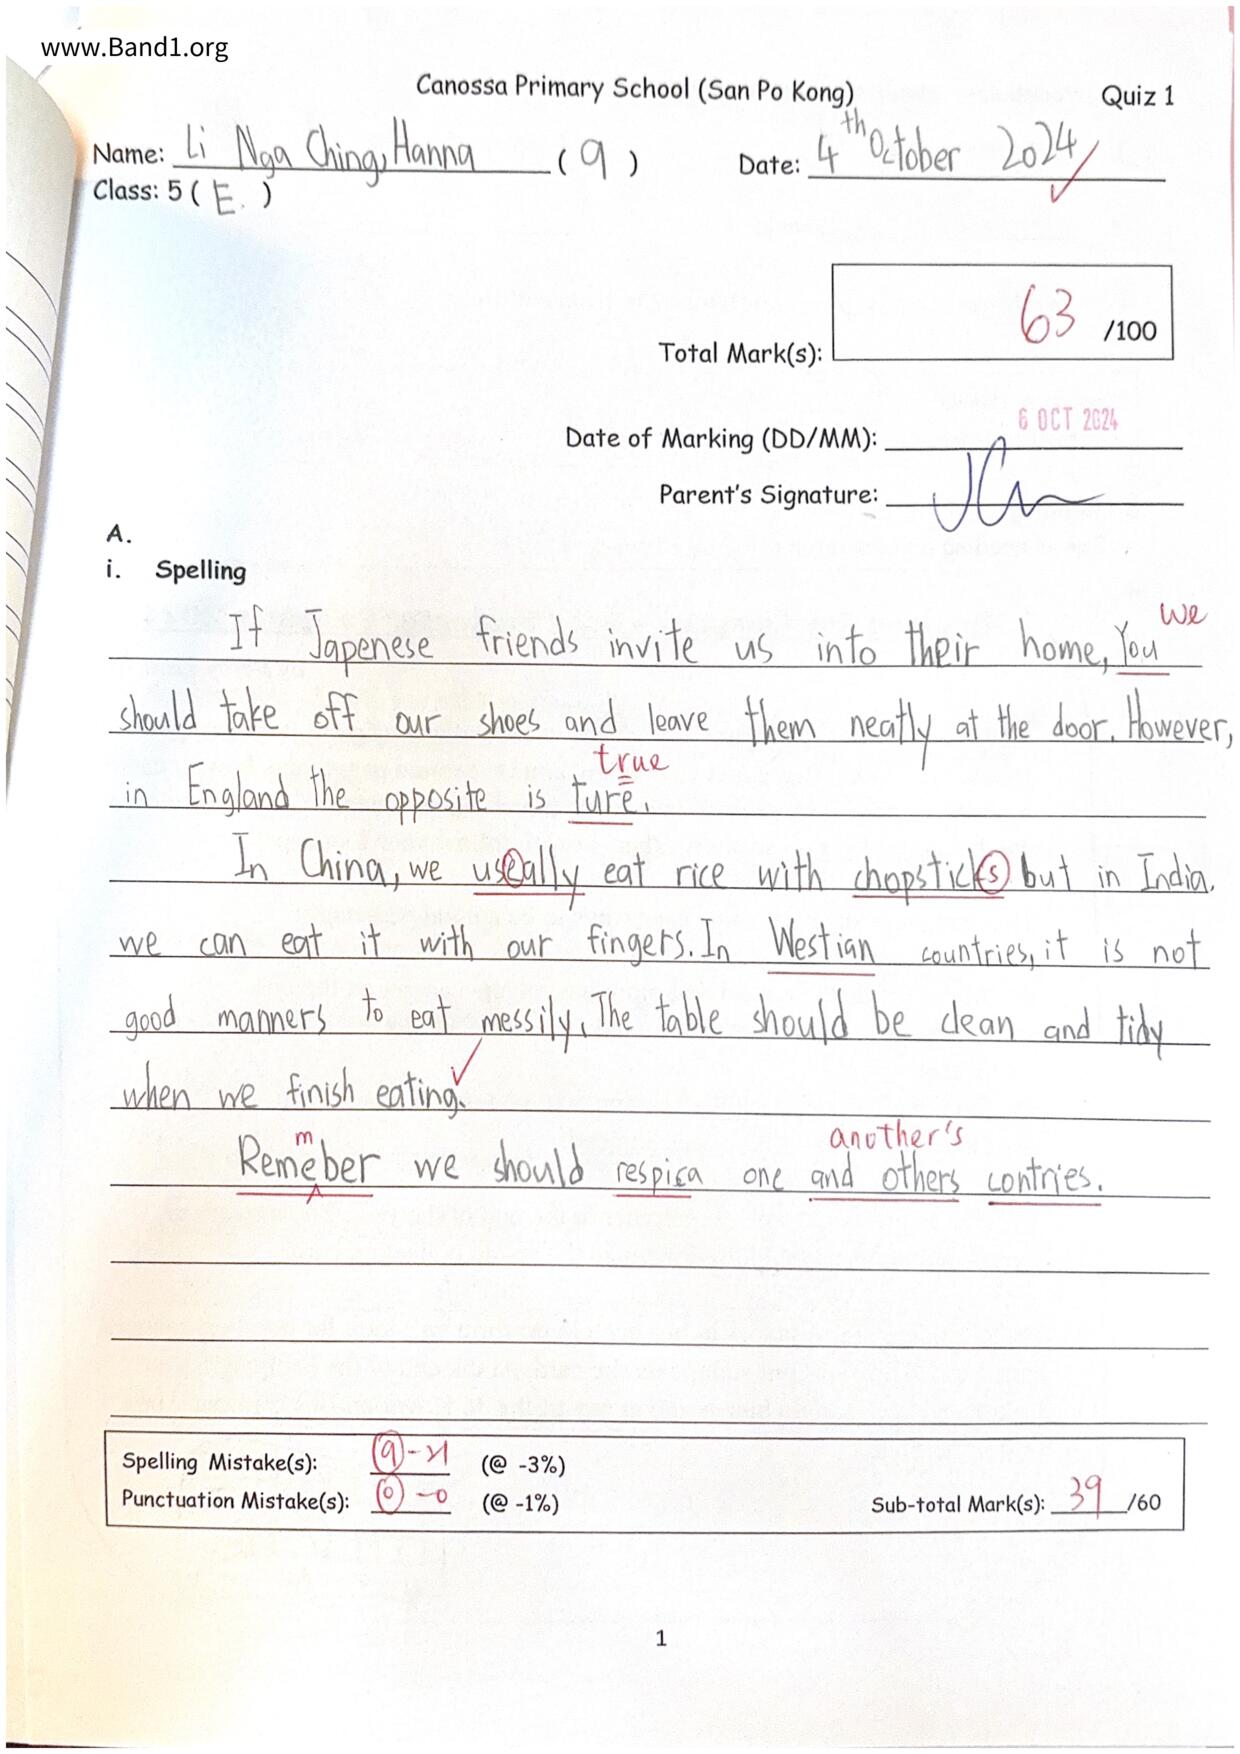 www.Band1.org
Canossa Primary School (San Po Kong)
Quiz 1
Name: Li Nga Ching, Hanna (9)
Date: 4th October 2024
Class: 5 (E.)
63 /100
Total Mark(s):
6 OCT 2024
Date of Marking (DD/MM):
Parent's Signature:
A.
i. Spelling
we
If Japenese friends invite us into their home, You
should take off our shoes and leave them neatly at the door. However,
true
in England the opposite is ture.
In China, we useally eat rice with chopsticks but in India.
we can eat it with our fingers. In Westian countries, it is not
good manners to eat messily. The table should be clean and tidy
when we finish eating.
m another's
Remeber we should respica one and others contries.
Spelling Mistake(s): 9 -21 (@ -3%)
Punctuation Mistake(s): 0 -0 (@ -1%)
Sub-total Mark(s): 39 /60
1